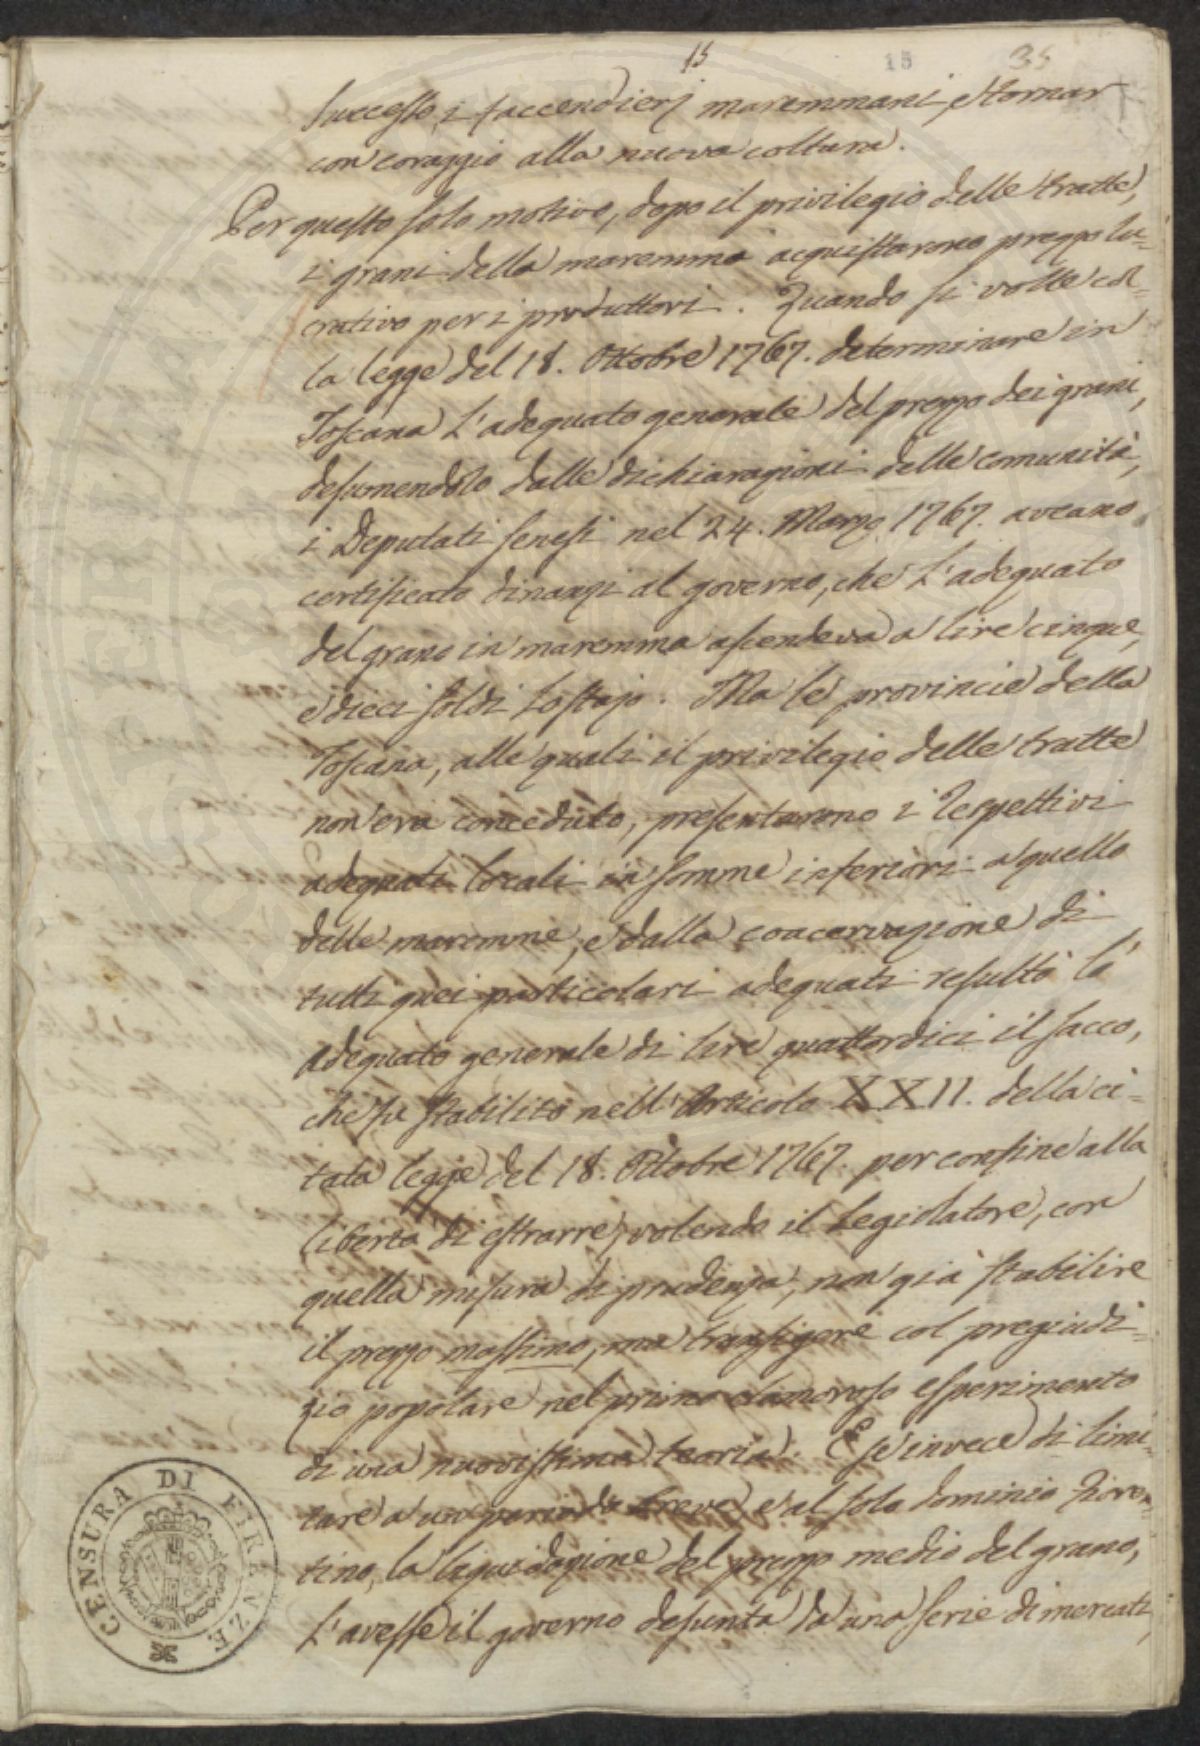 15 15 35
successo, i faccendieri maremmani, e tornar
con coraggio alla nuova coltura.
Per questo solo motivo, dopo il privilegio delle tratte,
i grani della maremma acquistarono prezzo lu=
crativo per i produttori. Quando si volle col=
la legge del 18. Ottobre 1767. determinare in
Toscana l'adeguato generale del prezzo dei grani,
desumendolo dalle dichiarazioni delle comunità,
i Deputati senesi nel 24. Marzo 1767. aveano
certificato dinanzi al governo, che l'adeguato
del grano in maremma ascendeva a lire cinque,
e dieci soldi lo stajo. Ma le provincie della
Toscana, alle quali il privilegio delle tratte
non era conceduto, presentarono i respettivi
adeguati locali in somme inferiori a quello
delle maremme, e dalla coacervazione di
tutti quei particolari adeguati resultò l'
adeguato generale di lire quattordici il sacco,
che fu stabilito nell'Articolo XXII. della ci=
tata legge del 18. Ottobre 1767. per confine alla
libertà di estrarre, volendo il Legislatore, con
quella misura di prudenza, non già stabilire
il prezzo massimo, ma transigere col pregiudi=
zio popolare nel primo clamoroso esperimento
di una nuovissima teoria. E se invece di limi=
tare a un periodo breve, e al solo dominio Fioren=
tino, la liquidazione del prezzo medio del grano,
l'avesse il governo desunta da una serie di mercati,
CENSURA DI FIRENZE